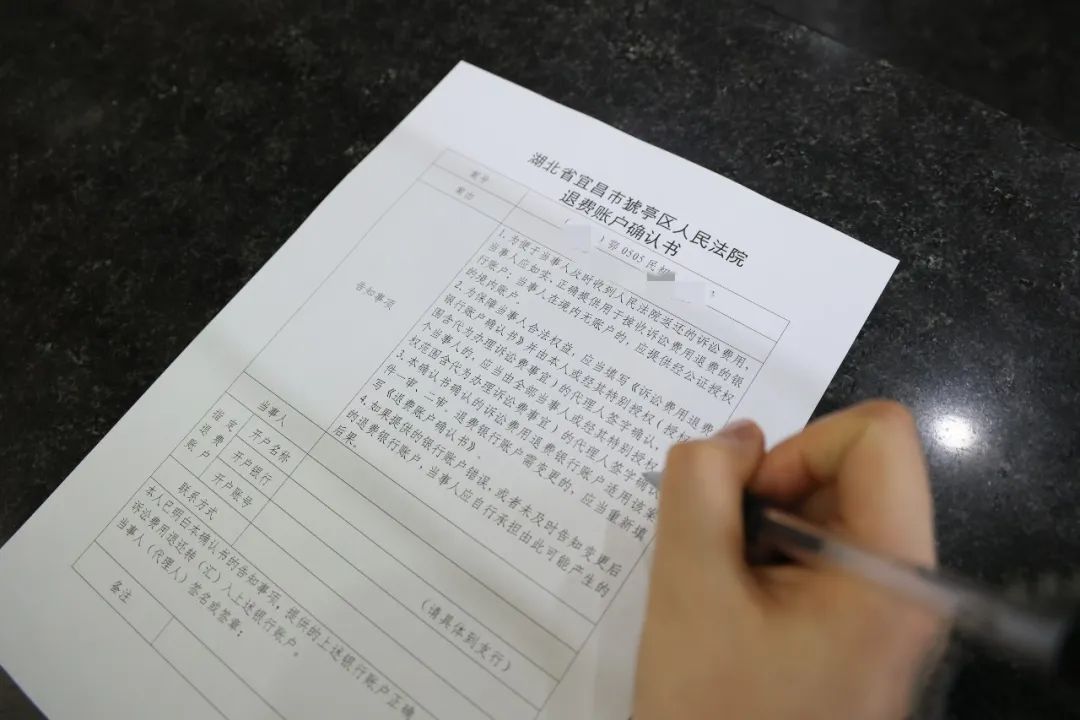 湖北省宜昌市猇亭区人民法院
退费账户确认书
案号
（ ）鄂0505民初
案由
告知事项
1.为便于当事人及时收到人民法院返还的诉讼费用，
当事人应如实、正确提供用于接收诉讼费用退费的银
行账户；当事人在境内无账户的，应提供经公证授权
的境内账户。
2.为保障当事人合法权益，应当填写《诉讼费用退费
银行账户确认书》并由本人或经其特别授权（授权
围含代为办理诉讼费事宜）的代理人签字确认，
个当事人的，应当由全部当事人或经其特别授权
权范围含代为办理诉讼费事宜）的代理人签字确认
3.本确认书确认的诉讼费用退费银行账户适用该案
件一审、二审。退费银行账户需变更的，应当重新填
写《退费账户确认书》。
4.如果提供的银行账户错误，或者未及时告知变更后
的退费银行账户，当事人应自行承担由此可能产生的
后果。
当事人
指定退费账户
开户名称
开户银行
（请具体到支行）
开户账号
联系方式
本人已明白本确认书的告知事项，提供的上述银行账户正确
诉讼费用退还转（汇）入上述银行账户。
当事人（代理人）签名或签章：
备注